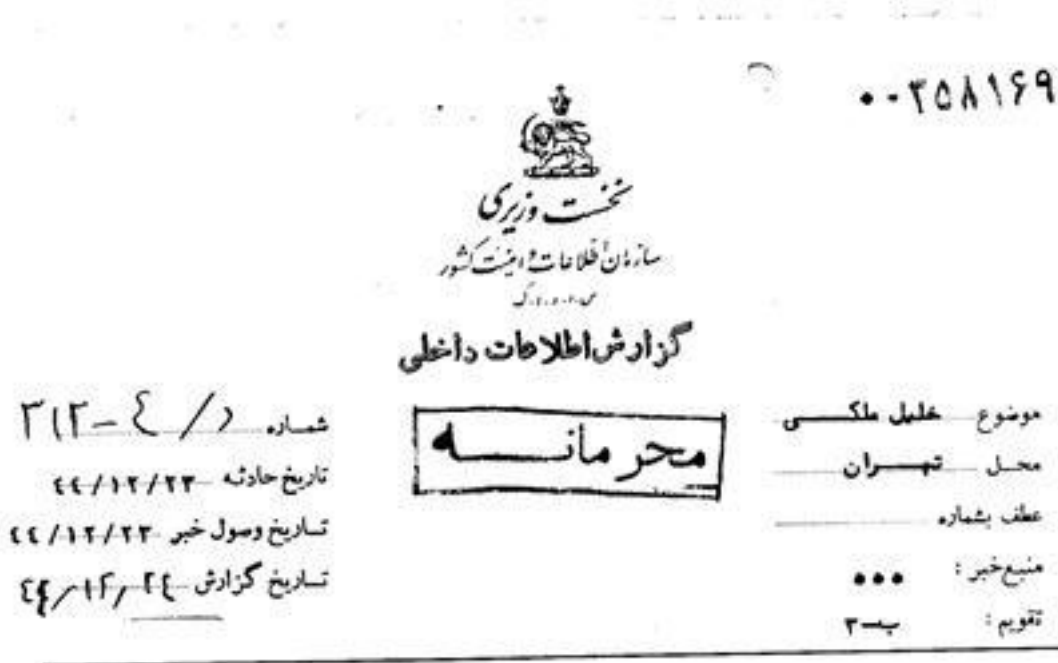 ۰۰۳۵۸۱۶۹
نخست وزیری
سازمان اطلاعات و امنیت کشور
س.ا.و.ا.ک
گزارش اطلاعات داخلی
محرمانـــه
موضوع خلیل ملکــی
محل تهــران
عطف بشماره
منبع خبر : •••
تقویم : ب-۳
شماره ۳۱۲-٤ /د
تاریخ حادثه ٤٤/۱۲/۲۳
تاریخ وصول خبر ٤٤/۱۲/۲۳
تاریخ گزارش ٤٤/۱۲/۲٤